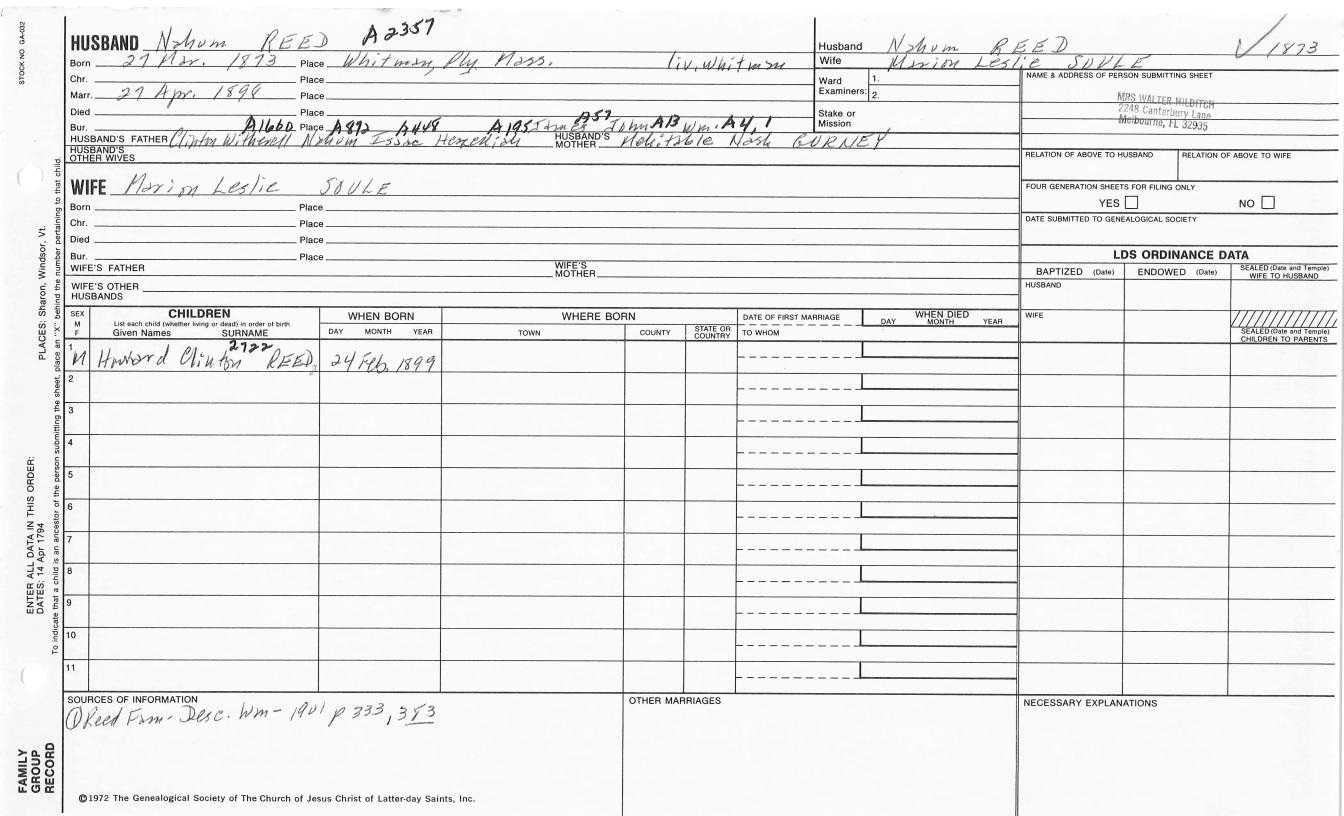 STOCK NO. GA-032
HUSBAND Nahum REED A2357
Born 27 Mar. 1873 Place Whitman, Ply. Mass. liv. Whitman
Chr. Place
Marr. 27 Apr. 1898 Place
Died Place
Bur. Place
A1660 A892 A448 A195 A57 A13 A4, 1
HUSBAND'S FATHER Clinton Witherell Nahum Issac Hezekiah James John Wm. HUSBAND'S MOTHER Mehitable Nash GURNEY
HUSBAND'S OTHER WIVES
Husband Nahum REED ✓ 1873
Wife Marion Leslie SOULE
Ward Examiners: 1.
2.
Stake or Mission
NAME & ADDRESS OF PERSON SUBMITTING SHEET
MRS WALTER HILDITCH
2248 Canterbury Lane
Melbourne, FL 32935
RELATION OF ABOVE TO HUSBAND RELATION OF ABOVE TO WIFE
FOUR GENERATION SHEETS FOR FILING ONLY
YES NO
DATE SUBMITTED TO GENEALOGICAL SOCIETY
WIFE Marion Leslie SOULE
Born Place
Chr. Place
Died Place
Bur. Place
WIFE'S FATHER WIFE'S MOTHER
WIFE'S OTHER HUSBANDS
LDS ORDINANCE DATA
BAPTIZED (Date) ENDOWED (Date) SEALED (Date and Temple) WIFE TO HUSBAND
HUSBAND
WIFE
SEALED (Date and Temple) CHILDREN TO PARENTS
SEX M F
CHILDREN
List each child (whether living or dead) in order of birth
Given Names SURNAME
WHEN BORN
DAY MONTH YEAR
WHERE BORN
TOWN COUNTY STATE OR COUNTRY
DATE OF FIRST MARRIAGE
TO WHOM
WHEN DIED
DAY MONTH YEAR
2722
1 M Howard Clinton REED 24 Feb. 1899
2
3
4
5
6
7
8
9
10
11
SOURCES OF INFORMATION
① Reed Fam- Desc. Wm- 1901 p 333, 383
OTHER MARRIAGES
NECESSARY EXPLANATIONS
©1972 The Genealogical Society of The Church of Jesus Christ of Latter-day Saints, Inc.
FAMILY GROUP RECORD
ENTER ALL DATA IN THIS ORDER:
DATES: 14 Apr 1794
PLACES: Sharon, Windsor, Vt.
To indicate that a child is an ancestor of the person submitting the sheet, place an "X" behind the number pertaining to that child.